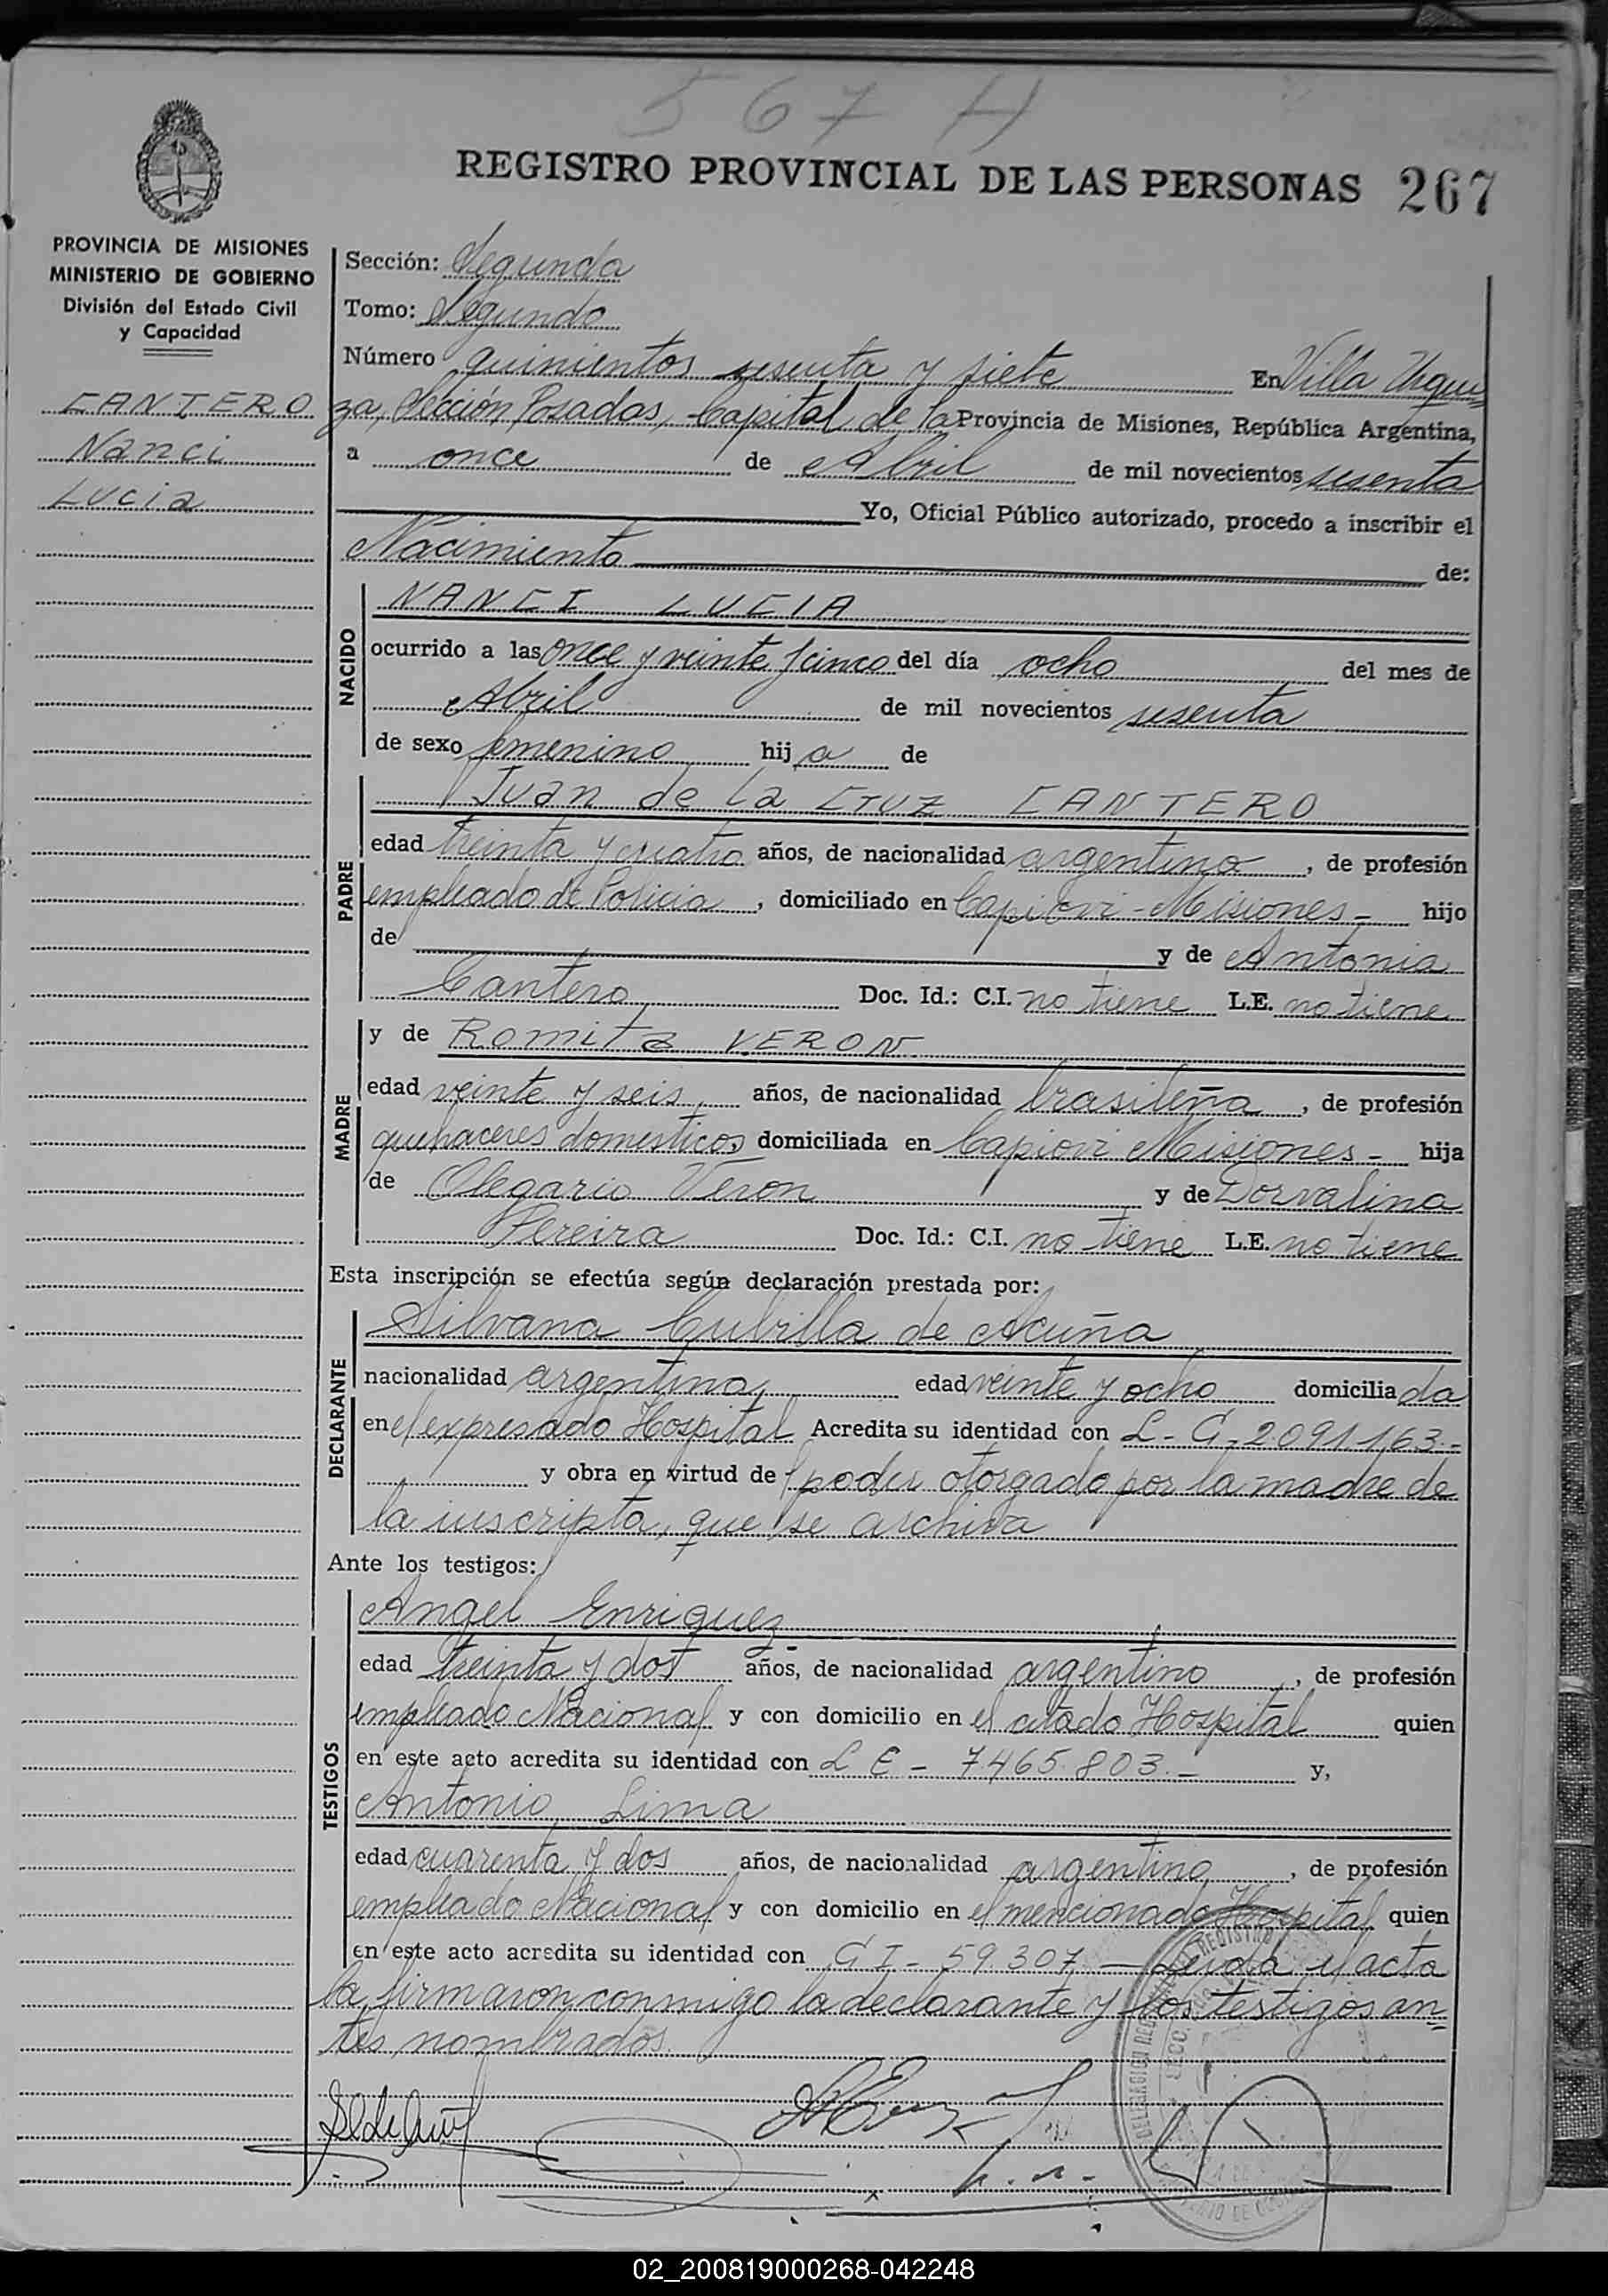 567 H
REGISTRO PROVINCIAL DE LAS PERSONAS 267
PROVINCIA DE MISIONES
MINISTERIO DE GOBIERNO
División del Estado Civil
y Capacidad
CANTERO
Nanci
Lucia
Sección: Segunda
Tomo: Segundo
Número quinientos sesenta y siete En Villa Urqui
za, Sección Posadas, Capital de la Provincia de Misiones, República Argentina,
a once de Abril de mil novecientos sesenta
Yo, Oficial Público autorizado, procedo a inscribir el
Nacimiento de:
NACIDO
NANCI LUCIA
ocurrido a las once y veinte y cinco del día ocho del mes de
Abril de mil novecientos sesenta
de sexo femenino hij a de
PADRE
Juan de la Cruz CANTERO
edad treinta y cuatro años, de nacionalidad argentino, de profesión
empleado de Policia, domiciliado en Capiovi-Misiones- hijo
de y de Antonia
Cantero Doc. Id.: C.I. no tiene L.E. no tiene
MADRE
y de Romita VERON
edad veinte y seis, años, de nacionalidad brasileña, de profesión
quehaceres domesticos, domiciliada en Capiovi Misiones- hija
de Olegario Veron y de Dorvalina
Pereira Doc. Id.: C.I. no tiene L.E. no tiene
Esta inscripción se efectúa según declaración prestada por:
DECLARANTE
Silvana Cubilla de Acuña
nacionalidad argentina, edad veinte y ocho domicilia da
en el expresado Hospital Acredita su identidad con L-C-2.091.163.-
y obra en virtud de poder otorgado por la madre de
la inscripta, que se archiva
Ante los testigos:
TESTIGOS
Angel Enriquez
edad treinta y dos años, de nacionalidad argentino, de profesión
empleado Nacional y con domicilio en el citado Hospital quien
en este acto acredita su identidad con L E - 7.465.803.- y,
Antonio Lima
edad cuarenta y dos años, de nacionalidad argentino, de profesión
empleado Nacional y con domicilio en el mencionado Hospital quien
en este acto acredita su identidad con C I - 59.307 - Leida el acta
la firmaron conmigo la declarante y los testigos an
tes nombrados.
02_200819000268-042248